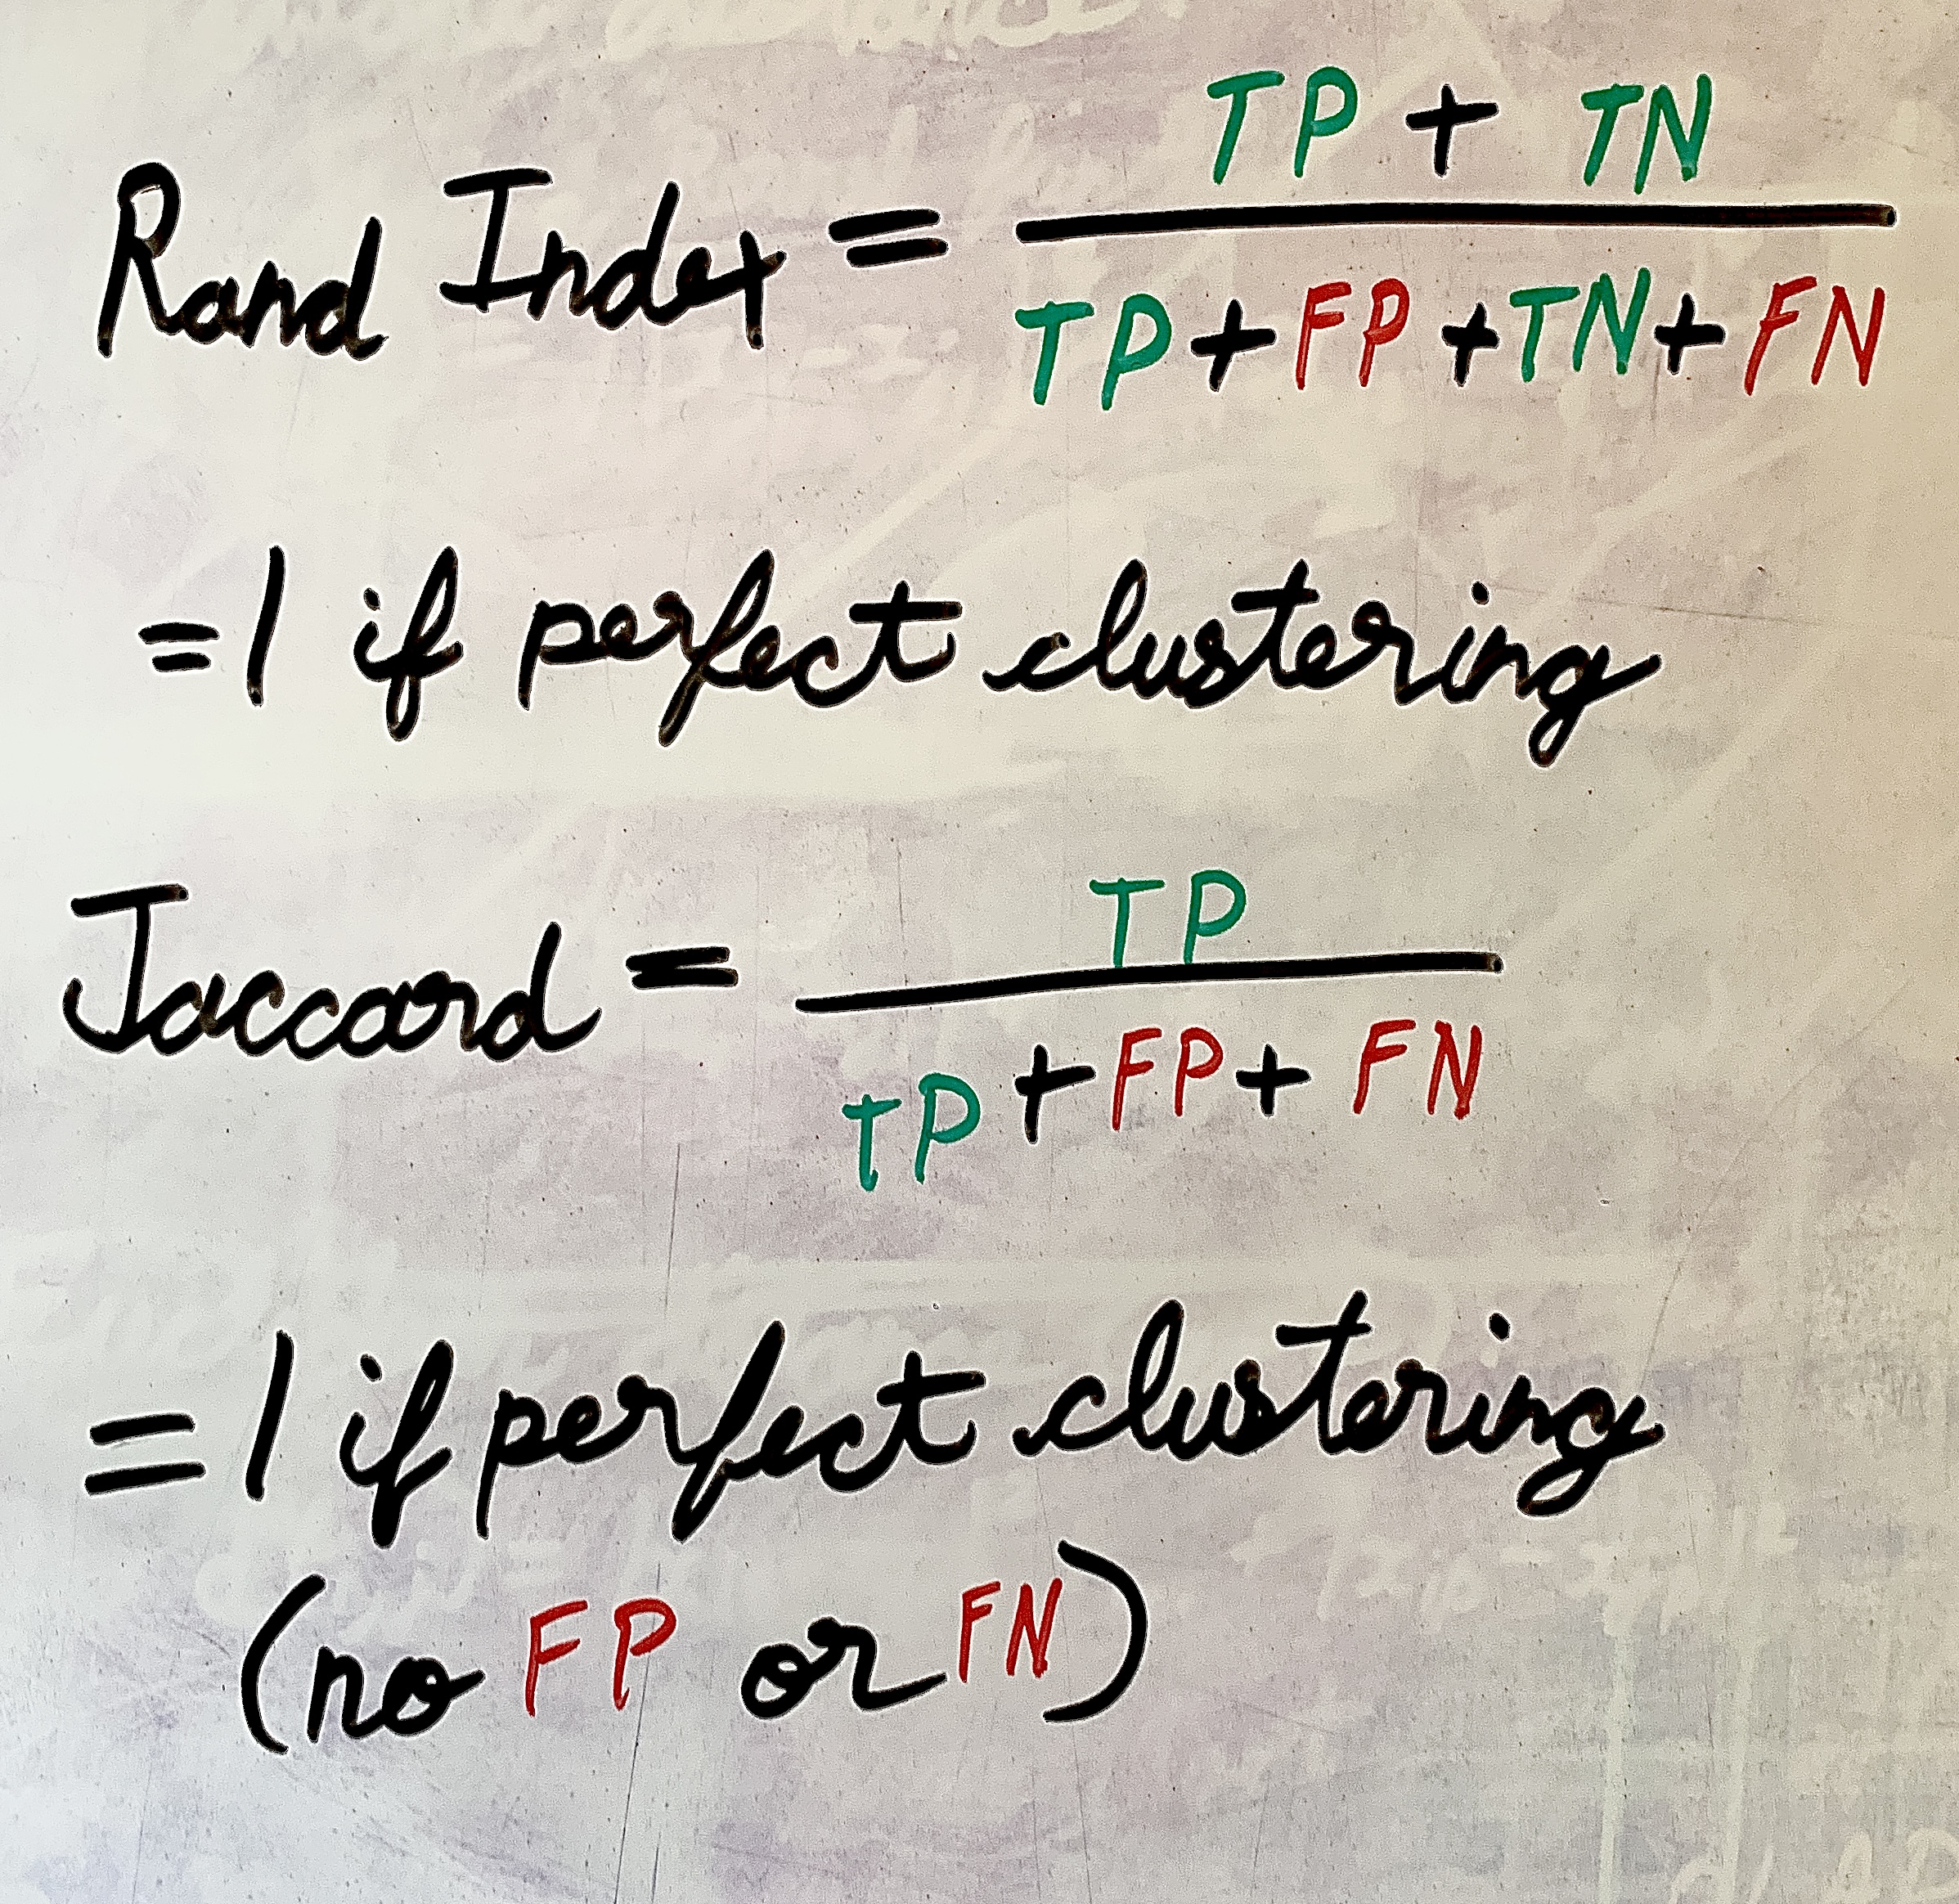 Rand Index = TP + TN / TP + FP + TN + FN
= 1 if perfect clustering
Jaccard = TP / TP + FP + FN
= 1 if perfect clustering
(no FP or FN)